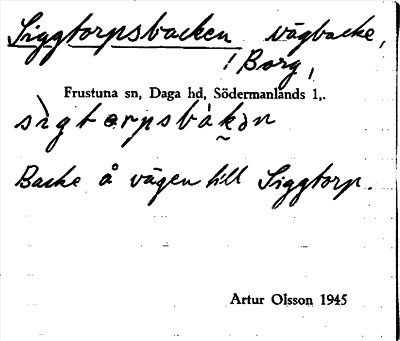 Siggtorpsbacken vägbacke,
i Borg,
Frustuna sn, Daga hd, Södermanlands l,.
sìgtorpsbàkən
Backe å vägen till Siggtorp.
Artur Olsson 1945